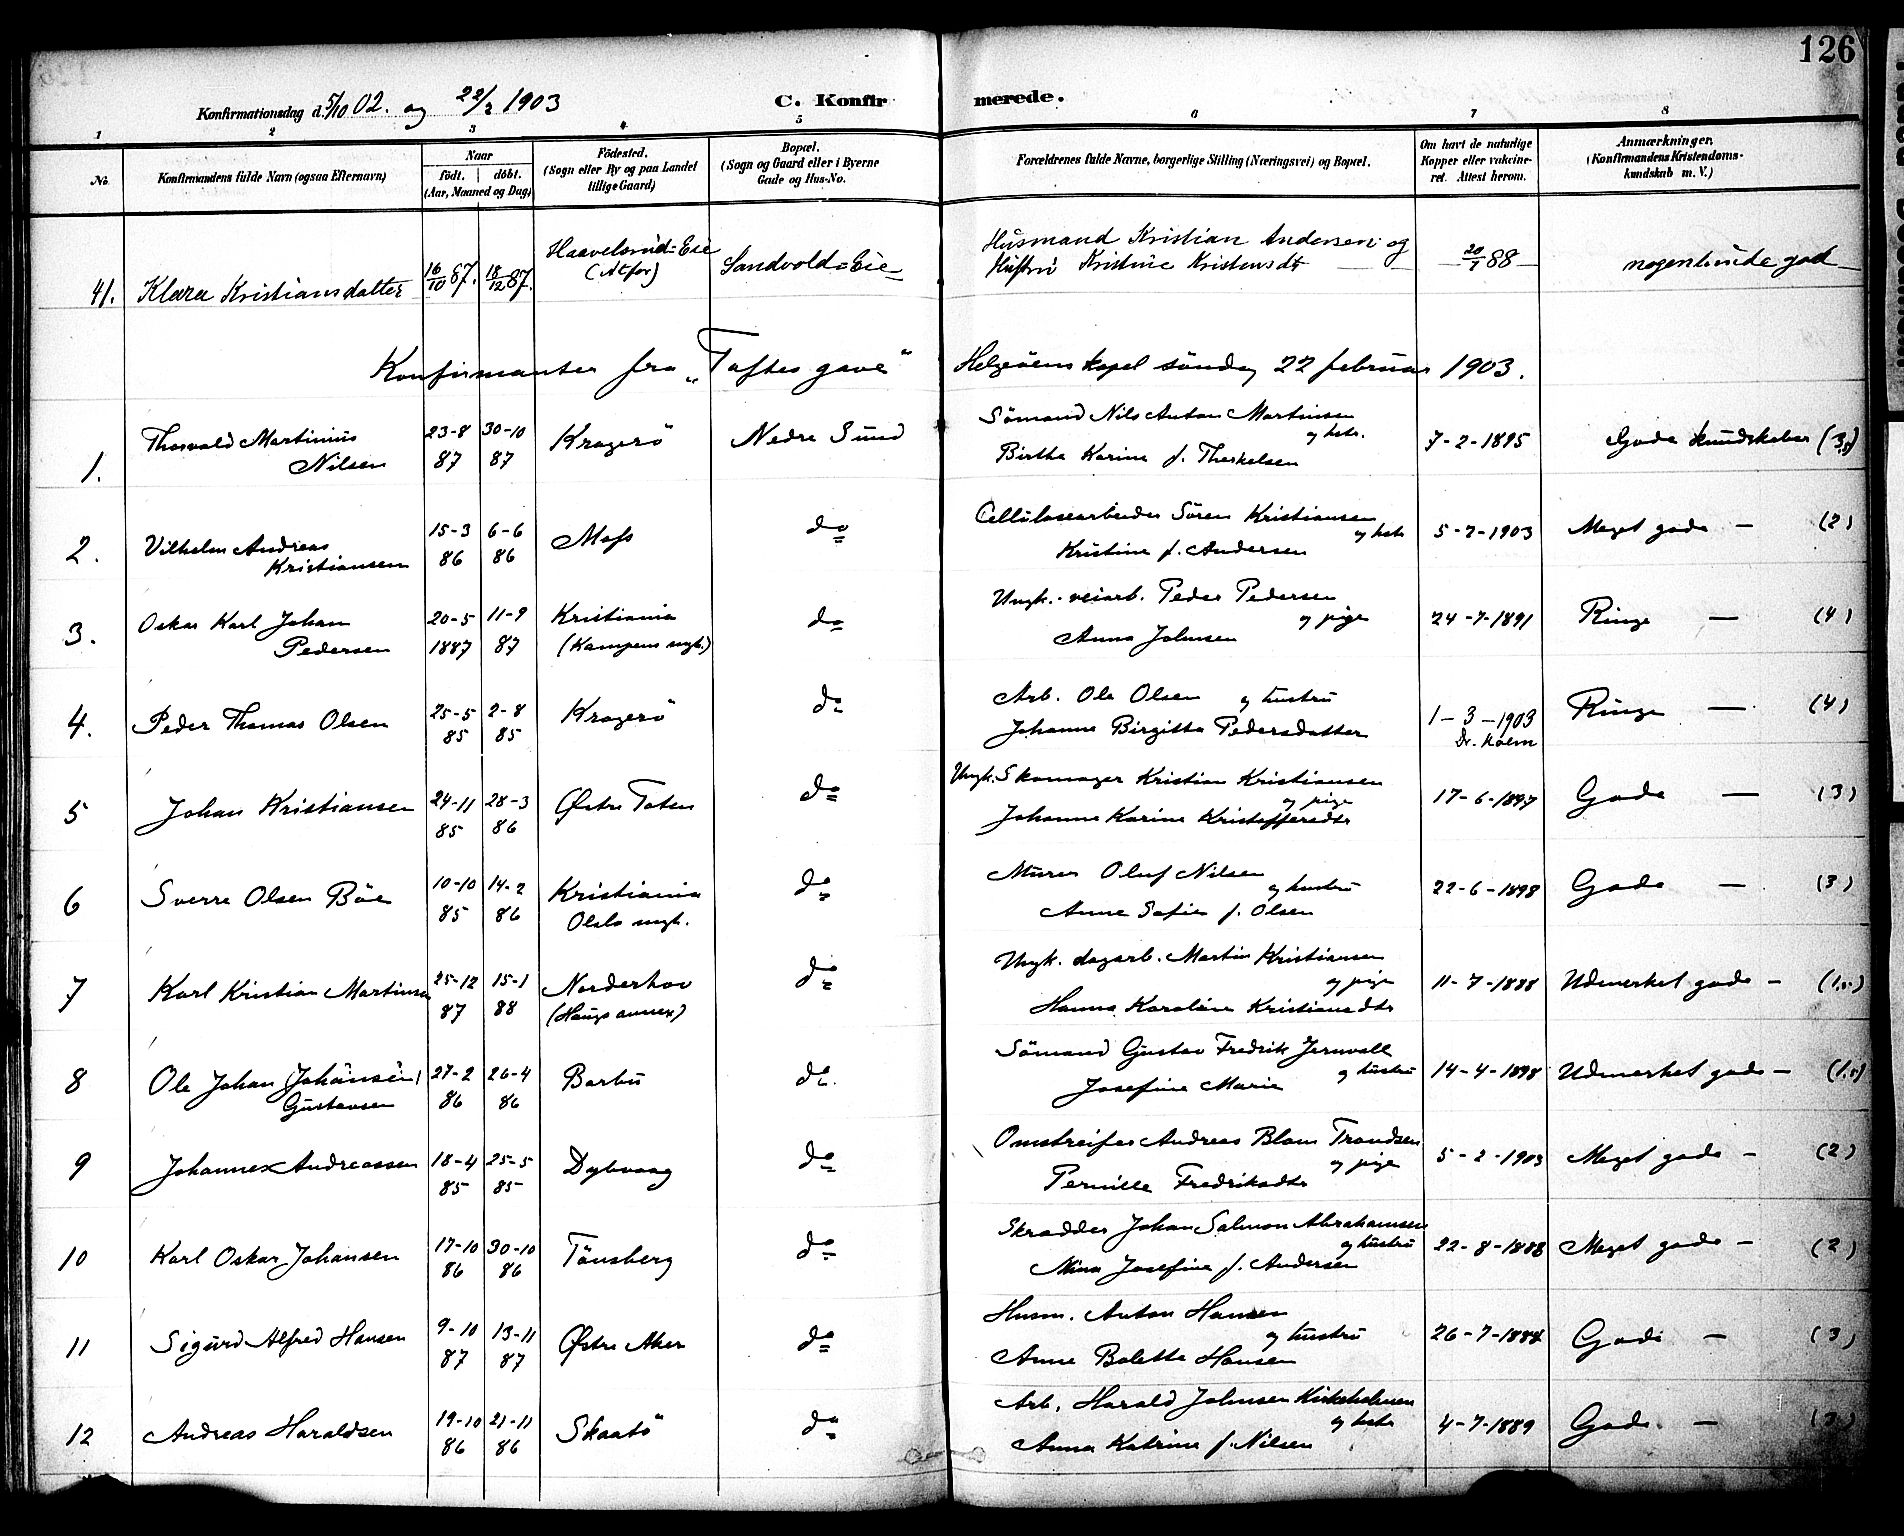 126
Konfirmationsdag d. 5/10 02. og 22/2 1903
C. Konfirmerede.
1 2 3 4 5 6 7 8
No.
Konfirmandens fulde Navn (ogsaa Efternavn)
Naar født. døbt. (Aar, Maaned og Dag)
Fødested. (Sogn eller By og paa Landet tillige Gaard)
Bopæl. (Sogn og Gaard eller i Byerne Gade og Hus-No.
Forældrenes fulde Navne, borgerlige Stilling (Næringsvei) og Bopæl.
Om havt de naturlige Kopper eller vakcineret. Attest herom.
Anmærkninger, (Konfirmandens Kristendomskundskab m. V.)
41. Klara Kristiansdatter 16/10 87. 18/12 87. Haavelsrud=Eie (Atfor) Sandvold=Eie Husmand Kristian Andersen og Hustru Kristine Kristensdt 20/1 88 nogenlunde god
Konfirmanter fra „Toftes gave" Helgeöens kapel søndag 22 februar 1903.
1. Thorvald Martinius Nilsen 23-8 87 30-10 87 Kragerö Nedre Sund Sömand Nils Anton Martinsen og hstr. Birthe Karine f. Therkelsen 7-2-1895 Gode kundskaber (3,5)
2. Vilhelm Andreas Kristiansen 15-3 86 6-6 86 Moss do Cellulosearbeider Sören Kristiansen og hstr Kristine f. Andersen 5-2-1903 Meget gode — (2)
3. Oskar Karl Johan Pedersen 20-5 1887 11-9 87 Kristiania (Kampens mgh.) do Ungk.-veiarb. Peder Pedersen og pige Anna Johnsen 24-7-1891 Ringe — (4)
4. Peder Thomas Olsen 25-5 85 2-8 85 Kragerö do Arb. Ole Olsen og hustru Johanne Birgitte Pedersdatter 1-3-1903 Dr. Holm Ringe — (4)
5 Johan Kristiansen 24-11 85 28-3 86 Østre Toten do Ungk. Skomager Kristian Kristiansen og pige Johanne Karine Kristoffersdtr 17-6-1897 Gode — (3)
6 Sverre Olsen Böe 10-10 85 14-2 86 Kristiania Oslo mgh. do Murer Oluf Nilsen og hustru Anne Sofie f. Olsen 22-6-1898 Gode — (3)
7 Karl Kristian Martinsen 25-12 87 15-1 88 Norderhov (Haugs annex) do Ungk. dagarb. Martin Kristiansen og pige Hanna Karoline Kristiansdtr 11-7-1888 Udmerket gode — (1,5)
8 Ole Johan (Johansen) Gustavsen 27-2 86 26-4 86 Barbu do. Sömand Gustav Fredrik Jernvall og hustru Josefine Marie 14-4-1898 Udmerket gode — (1,5)
9 Johannes Andreassen 18-4 85 25-5 85 Dybvaag do Omstreifer Andreas Blom Trondsen og pige Pernille Fredriksdtr 5-2-1903 Meget gode — (2)
10 Karl Oskar Johansen 17-10 86 30-10 86 Tönsberg do Skrædder Johan Salmon Abrahamsen og hustru Mina Josefine f. Andersen 22-8-1888 Meget gode — (2)
11 Sigurd Alfred Hansen 9-10 87 13-11 87 Østre Aker do Husm. Anton Hansen og hustru Anne Bolette Hansen 26-7-1884 Gode — (3)
12 Andreas Haraldsen 19-10 86 21-11 86 Skaatö do Arb. Harald Johnsen Kirkeholmen og hstr Anna Katrine f. Nilsen 4-7-1889 Gode. — (3)